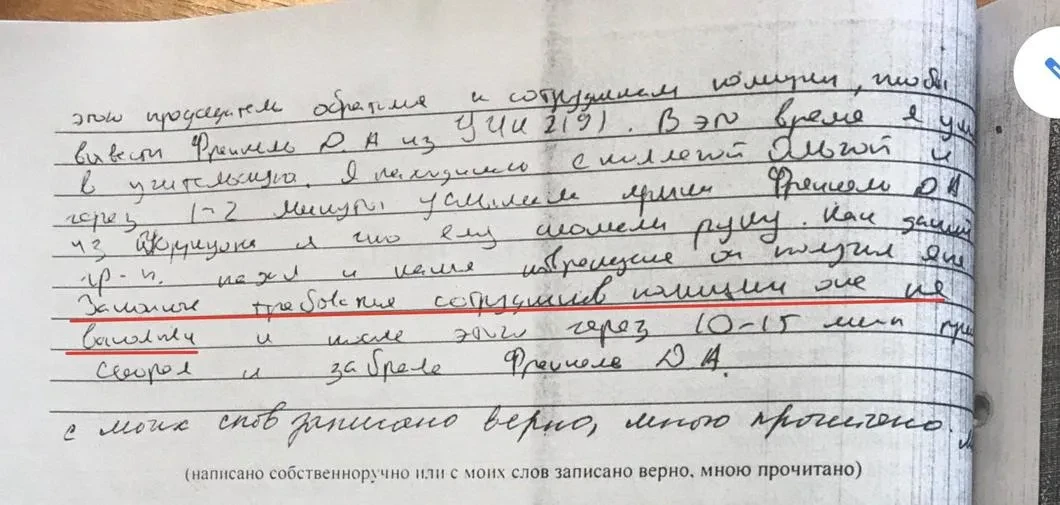 этого председатель обратился к сотрудникам полиции, чтобы
вывести Френкель Д А из УИК 2191. В это время я
в учительскую. Я находилась с коллегой Ольгой и
через 1-2 минуты услышали крики Френкель Д А
из что ему сломали руку. Как данный
гр-н. и какие он получил я не
Законные требования сотрудников полиции он не
выполнил и после этого через 10-15 мин
скорая и забрала Френкеля Д А.
с моих слов записано верно, мною прочитано.
(написано собственноручно или с моих слов записано верно, мною прочитано)